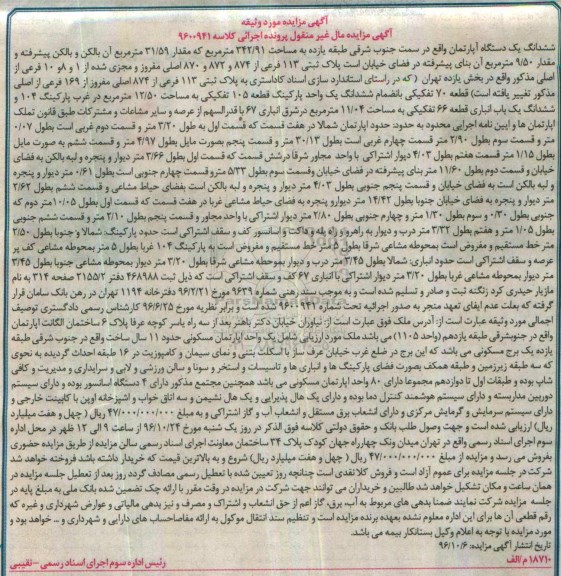 آگهی مزایده مورد وثیقه
آگهی مزایده مال غیر منقول پرونده اجرائی کلاسه ۹۶۰۰۹۴۱
ششدانگ یک دستگاه آپارتمان واقع در سمت جنوب شرقی طبقه یازده به مساحت ۳۴۲/۹۱ مترمربع که مقدار ۳۱/۵۹ مترمربع آن بالکن و بالکن پیشرفته و
مقدار ۹/۵۰ مترمربع آن بنای پیشرفته در فضای خیابان است پلاک ثبتی ۱۱۳ فرعی از ۸۷۴ و ۸۷۲ و ۸۷۰ اصلی مفروز و مجزی شده از ۱ و ۸و ۱۰ فرعی از
اصلی مذکور واقع در بخش یازده تهران ( که در راستای استاندارد سازی اسناد کاداستری به پلاک ثبتی ۱۱۳ فرعی از ۸۷۴ اصلی مفروز از ۱۶۹ فرعی از اصلی
مذکور تغییر یافته است) قطعه ۷۰ تفکیکی بانضمام ششدانگ یک واحد پارکینگ قطعه ۱۰۵ تفکیکی به مساحت ۱۲/۵۰ مترمربع در غرب پارکینگ ۱۰۴ و
ششدانگ یک باب انباری قطعه ۶۶ تفکیکی به مساحت ۱۱/۰۴ مترمربع درشرق انباری ۶۷ با قدرالسهم از عرصه و سایر مشاعات و مشترکات طبق قانون تملک
آپارتمان ها و آیین نامه اجرایی محدود به حدود: حدود اپارتمان شمالا در هفت قسمت که قسمت اول به طول ۳/۲۰ متر و قسمت دوم غربی است بطول ۰/۰۷
متر و قسمت سوم بطول ۲/۹۰ متر قسمت چهارم غربی است بطول ۳۰/۱۳ متر و قسمت پنجم بصورت مایل بطول ۴/۹۷ متر و قسمت ششم به صورت مایل
بطول ۱/۱۵ متر قسمت هفتم بطول ۴/۰۳ دیوار اشتراکی با واحد مجاور شرقا درشش قسمت که قسمت اول بطول ۳/۶۶ متر دیوار و پنجره و لبه بالکن به فضای
خیابان و قسمت دوم بطول ۱۱/۶۰ متر بنای پیشرفته در فضای خیابان وقسمت سوم بطول ۵/۳۳ مترو قسمت چهارم جنوبی است بطول ۰/۶۱ متر دیوار و پنجره
و لبه بالکن است به فضای خیابان و قسمت پنجم جنوبی بطول ۴/۰۳ متر دیوار و پنجره و لبه بالکن است بفضای حیاط مشاعی و قسمت ششم بطول ۲/۶۲
متر دیوار و پنجره به فضای خیابان جنوبا بطول ۱۴/۴۲ متر دیوارو پنجره به فضای حیاط مشاعی غربا در هفت قسمت که قسمت اول بطول ۱۰/۰۵متر دوم که
جنوبی بطول ۰/۳۰ و سوم بطول ۱/۳۰ متر و چهارم جنوبی بطول ۲/۸۰ متر دیوار اشتراکی با واحد مجاور و قسمت پنجم بطول ۲/۱۰ متر و قسمت ششم جنوبی
بطول ۱/۰۵ متر و هفتم بطول ۳/۳۲ متر درب و دیوار به راهرو و راه پله و داکت و آسانسور کف و سقف اشتراکی است حدود پارکینگ: شمالا و جنوبا بطول ۲/۵۰
متر خط مستقیم و مفروض است بمحوطه مشاعی شرقا بطول ۵ متر خط مستقیم و مفروض است به پارکینگ ۱۰۴ غربا بطول ۵ متر بمحوطه مشاعی کف بر
عرصه و سقف اشتراکی است حدود انباری: شمالا بطول ۳/۴۵ متر درب و دیوار بموحطه مشاعی شرقا بطول ۳/۲۰ متر بمحوطه دفتر مشاعی جنوبا بطول ۳/۴۵
متر دیوار بمحوطه مشاعی غربا بطول ۳/۲۰ متر دیوار اشتراکی با انباری ۶۷ کف و سقف اشتراکی است که ذیل ثبت ۴۶۸۹۸۸ دفتر ۳۱۵۵/۲ صفحه ۳۱۴ به نام
مازیار حیدری کرد زنگنه ثبت و صادر و تسلیم شده است و به موجب سند رهنی شماره ۹۶۳۹ مورخ ۹۶/۲/۲۱ دفترخانه ۱۱۹۴ تهران در رهن بانک سامان قرار
گرفته که بعلت عدم ایفای تعهد منجر به صدور اجرائیه تحت شماره ۹۶۰۰۹۴۱ شده است و برابر نظریه مورخ ۹۶/۶/۲۵ کارشناس رسمی دادگستری توصیف
اجمالی مورد وثیقه عبارت است از: آدرس ملک فوق عبارت است از: نیاوران خیابان دکتر باهنر بعد از سه راه یاسر کوچه عرفا پلاک ۶ ساختمان الگانت آپارتمان
واقع در جنوبشرقی طبقه یازدهم (واحد ۱۱۰۵) می باشد ملک مورد ارزیابی شامل یک واحد آپارتمان مسکونی حدود ۱۱ سال ساخت واقع در جنوب شرقی طبقه
یازده یک برج مسکونی می باشد که این برج در ضلع غرب خیابان عرف ساز با اسکلت بتنی و نمای سیمان و کامپوزیت در ۱۶ طبقه احداث گردیده به نحوی
که سه طبقه زیرزمین و طبقه همکف بصورت فضای پارکینگ ها و انباری ها و تاسیسات و استخر و سونا و سالن ورزشی و لابی و سرایداری و مدیریت و کافی
شاپ بوده و طبقات اول تا دوازدهم مجموعا دارای ۸۰ واحد آپارتمان مسکونی می باشد همچنین مجتمع مذکور دارای ۴ دستگاه آسانسور بوده و دارای سیستم
دوربین مداربسته و دارای سیستم هوشمند کنترل دما بوده و دارای یک هال پذیرایی و یک هال نشیمن و سه اتاق خواب و آشپزخانه اوپن با کابینت خارجی و
دارای سیستم سرمایش و گرمایش مرکزی و دارای انشعاب برق مستقل و انشعاب آب و گاز اشتراکی و به مبلغ ۴۷/۰۰۰/۰۰۰/۰۰۰ ریال ( چهل و هفت میلیارد
ریال) ارزیابی شده است و جهت وصول طلب بانک و حقوق دولتی کلاسه فوق الذکر در روز یک شنبه مورخ ۹۶/۱۰/۲۴ از ساعت ۹ الی ۱۲ ظهر در محل اداره
سوم اجرای اسناد رسمی واقع در تهران میدان ونک چهارراه جهان کودک پلاک ۳۴ ساختمان معاونت اجرای اسناد رسمی سالن مزایده از طریق مزایده حضوری
بفروش می رسد و مزایده از مبلغ ۴۷/۰۰۰/۰۰۰/۰۰۰ ریال ( چهل و هفت میلیارد ریال) شروع و به بالاترین قیمت که خریدار داشته باشد فروخته خواهد شد
شرکت در جلسه مزایده برای عموم آزاد است و فروش کلا نقدی است چنانچه روز تعیین شده با تعطیل رسمی مصادف گردد روز بعد از تعطیل جلسه مزایده در
همان ساعت و مکان تشکیل خواهد شد طالبین و خریداران می توانند جهت شرکت در مزایده در وقت مقرر با ارائه چک تضمین شده بانک ملی به مبلغ پایه در
جلسه مزایده شرکت نمایند ضمنا بدهی های مربوط به آب، برق، گاز اعم از حق انشعاب و اشتراک و مصرف و نیز بدهی مالیاتی و عوارض شهرداری و غیره که
رقم قطعی آن ها برای این اداره معلوم نشده بعهده برنده مزایده است و تنظیم سند انتقال موکول به ارائه مفاصاحساب های دارایی و شهرداری و .. خواهد بود و
مورد مزایده با توجه به اعلام وکیل بستانکار بیمه می باشد.
تاریخ انتشار آگهی مزایده: ۹۶/۱۰/۶
۱۸۷۱۰ م/الف
رئیس اداره سوم اجرای اسناد رسمی - نقیبی